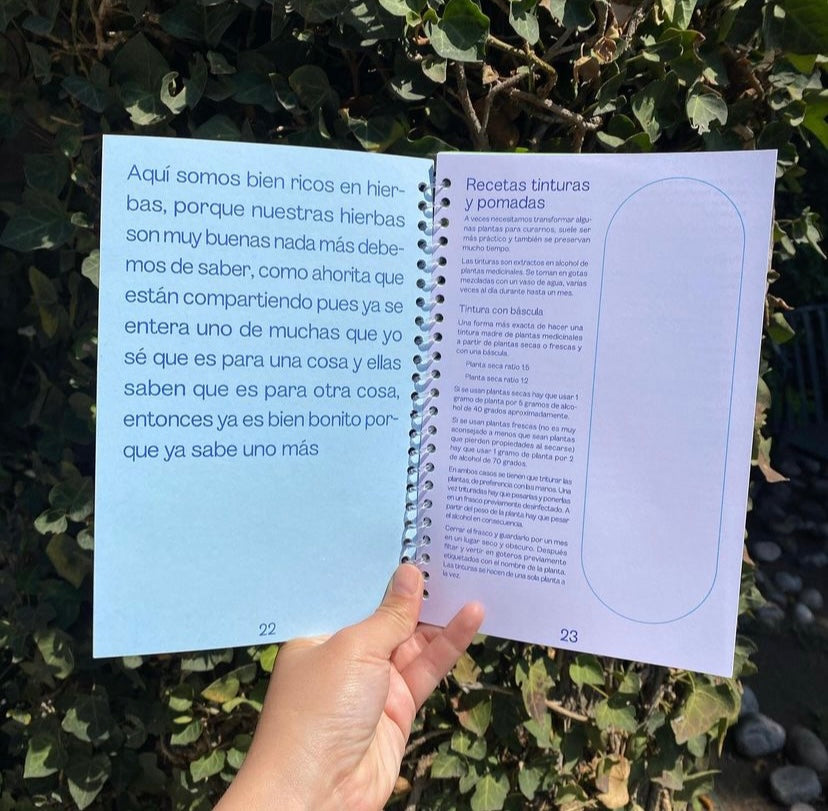 Aquí somos bien ricos en hier-
bas, porque nuestras hierbas
son muy buenas nada más debe-
mos de saber, como ahorita que
están compartiendo pues ya se
entera uno de muchas que yo
sé que es para una cosa y ellas
saben que es para otra cosa,
entonces ya es bien bonito por-
que ya sabe uno más
22
Recetas tinturas
y pomadas
A veces necesitamos transformar algu-
nas plantas para curarnos, suele ser
más práctico y también se preservan
mucho tiempo.
Las tinturas son extractos en alcohol de
plantas medicinales. Se toman en gotas
mezcladas con un vaso de agua, varias
veces al día durante hasta un mes.
Tintura con báscula
Una forma más exacta de hacer una
tintura madre de plantas medicinales
a partir de plantas secas o frescas y
con una báscula.
Planta seca ratio 1:5
Planta seca ratio 1:2
Si se usan plantas secas hay que usar 1
gramo de planta por 5 gramos de alco-
hol de 40 grados aproximadamente.
Si se usan plantas frescas (no es muy
aconsejado a menos que sean plantas
que pierden propiedades al secarse)
hay que usar 1 gramo de planta por 2
de alcohol de 70 grados.
En ambos casos se tienen que triturar las
plantas, de preferencia con las manos. Una
vez trituradas hay que pesarlas y ponerlas
en un frasco previamente desinfectado. A
partir del peso de la planta hay que pesar
el alcohol en consecuencia.
Cerrar el frasco y guardarlo por un mes
en un lugar seco y obscuro. Después
filtar y vertir en goteros previamente
etiquetados con el nombre de la planta.
Las tinturas se hacen de una sola planta a
la vez.
23